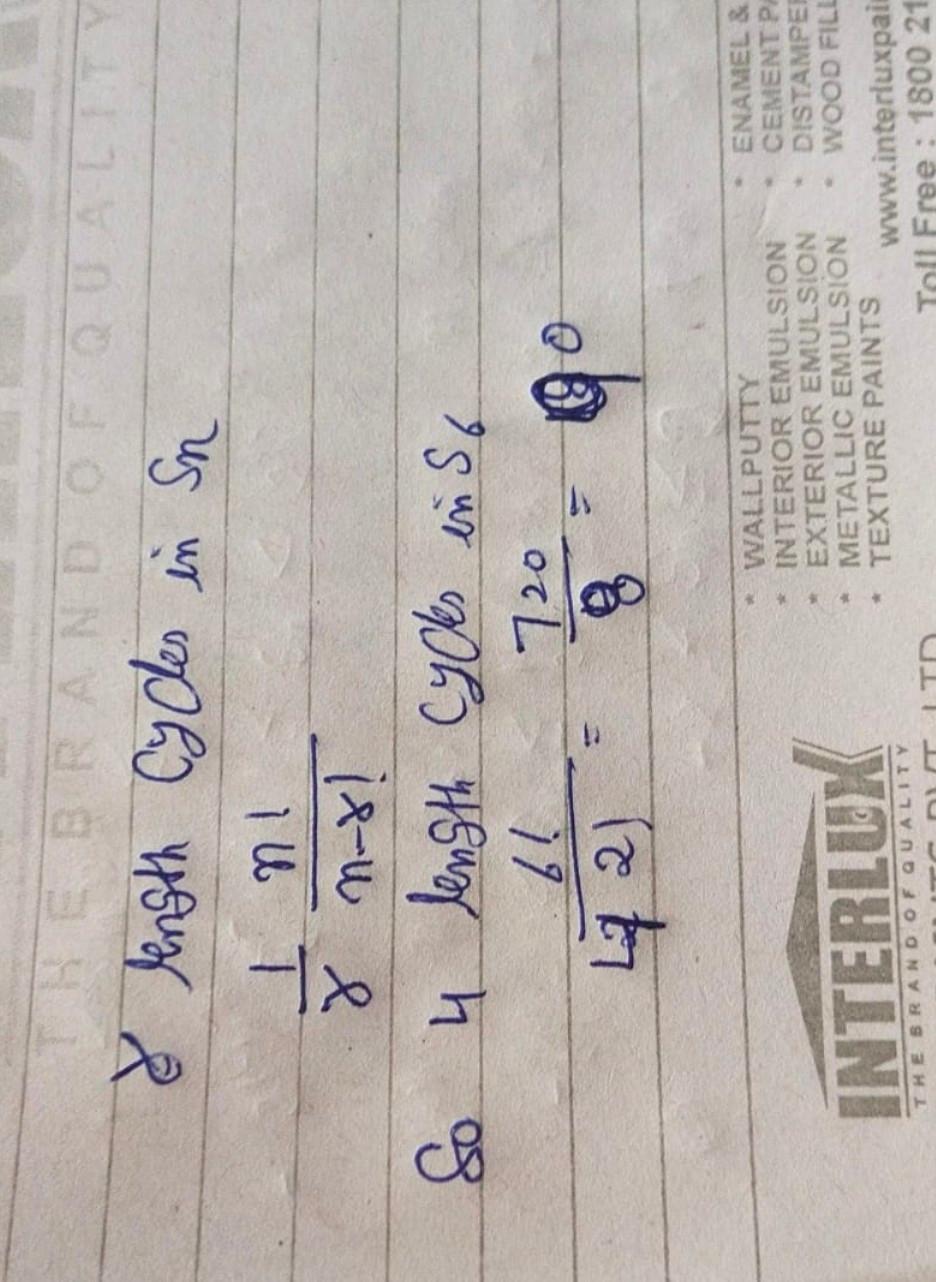 THE BRAND OF QUALITY
r length cycles in Sn
1/r n!/n-r!
So 4 length cycles in S6
6!/4 2! = 720/8 = 90
INTERLUX
THE BRAND OF QUALITY
* WALLPUTTY
* INTERIOR EMULSION
* EXTERIOR EMULSION
* METALLIC EMULSION
* TEXTURE PAINTS
* ENAMEL &
* CEMENT
* DISTAMPER
* WOOD
www.interluxpai
Toll Free : 1800 21
LTD